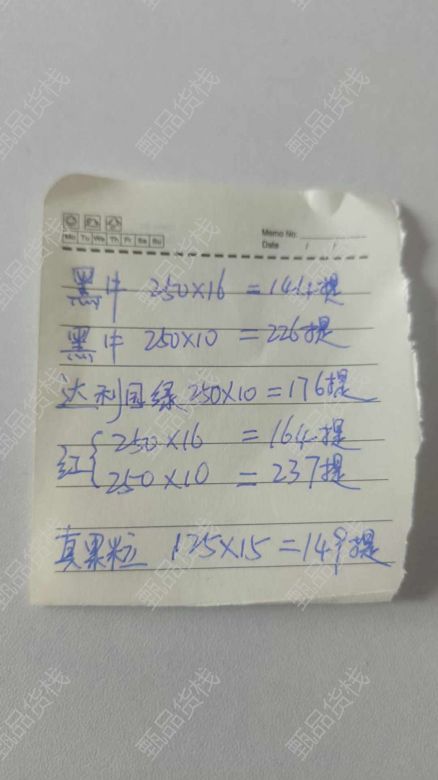 Memo No.
Mo Tu We Th Fr Sa Su
Date / /
黑牛 250×16 =144提
黑牛 250×10 =226提
达利园绿250×10=176提
红{250×16 =164提
250×10 =237提
真果粒 125×15=149提
甄品货栈